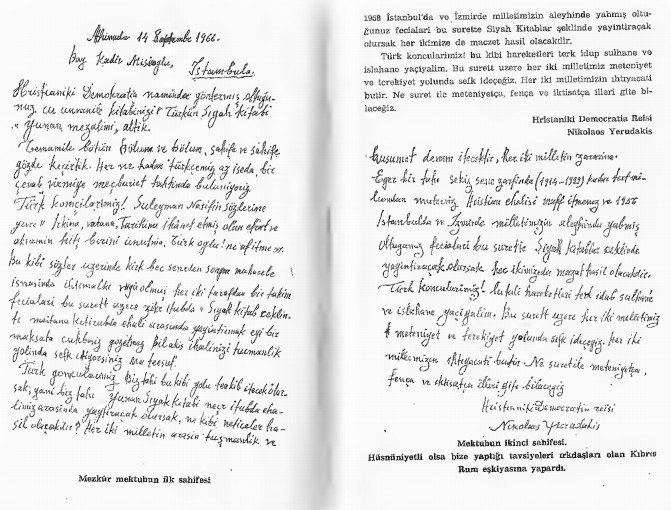 Athinada 14 Septembr 1966.
Bay Kadir Mısıoğlu,
İstambula.
Hristianiki Democratia namından göntermış olduğu-
nuz unvanile kitabinizi "Türkün Siyah kitabı
"Yunan mezalimi, altık.
Temamile bütün Bölüm ve bölum, sahife ve sahife
gözde keçirtik. Her ne kadar türkçemiz az iseda, bir
cevab vizmiye mecburiet tahtinda bulunıyoriz
Türk komçilarimiz! Suleyman Nasifin sözlerine
göre " İkina, vatana, Tarituna ihânet etmiş olan efert ve
akramin hitç berini unutma, Türk oglu! ne af itme".
Bu kibi sözler uzerinde kirk beş seneden soapra muharebe
isnasında ihtimalke vaqi olmuş her iki taraftan bir takim
fecialari bu surett uzere zikr itubda "Siyah kitab" seklin-
te maitana ketirubta ehali arasında yayintirmak eyi bir
maksata cukbmiz gozetmez bilakis ehalinizi tuşmanlik
yolinda sefk idiyorsiniz Ma teesuf.
Türk gomçularimiz Biztahi bu kibi yolu teakib itecek olur-
sak, yani biz tahi Yunan Siyah kitabi neçr itubda eha-
limiz arasinda yaytiracak olursak, ne kibi neticeler ha-
sil olacaktir? Her iki milletin arasin tuşmanlik ve
Mezkûr mektubun ilk sahifesi
1958 İstanbul'da ve İzmirde milletimizin aleyhinde yabmış oltu-
ğunuz fecialari bu surette Siyah Kitablar şeklinde yayintiraçak
olursak her ikimize de maczet hasil olacakdir.
Türk koncularimiz! bu kibi hareketleri terk idup sulhane ve
islahane yaçiyalim. Bu surett uzere her iki milletimiz meteniyet
ve terekiyet yolunda sefk ideçeğiz. Her iki milletimizin ihtıyacati
butir. Ne suret ile meteniyetça, fença ve iktisatça illeri gite bi-
laceğiz.
Hristaniki Democratia Reisi
Nikolaos Yerudakis
husumet devem itecektir, her iki milletin zararina.
Eger biz tahi sekiz sene zarfinda (1914-1922) kadar
Hristian ehalisi muff itmeniz ve 1958
İstambulda ve İzmirde milletimizin aleyhinda yabmış
oltugunuz fecialari bu surette Siyah kitablar şeklinde
yayintiraçak olursak her ikimizeda maczet hasil olacakdir.
Türk koncularimiz! bu kibi hareketleri terk idub sulhane
ve islahane yaçiyalim. Bu surett uzere her iki milletimiz
meteniyet ve terekiyet yolunda sefk ideçeğiz. Her iki
milletimizin ihtiyacati butir. Ne suret ile meteniyetça,
fença ve iktisatça illeri gite bileceğiz
Hristianiki Democratia reisi
Nikolaos Yerudakis
Mektubun ikinci sahifesi.
Hüsnüniyetli olsa bize yaptığı tavsiyeleri ırkdaşları olan Kıbrıs
Rum eşkiyasına yapardı.